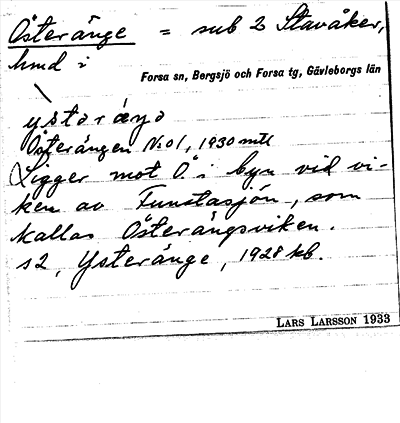 Österänge = sub 2 Stavåker,
hmd i
Forsa sn, Bergsjö och Forsa tg, Gävleborgs län
\
ystəræŋə
Österängen No1, 1930 mtl
Ligger mot Ö i byn vid vi-
ken av Funstasjön, som
kallas Österängsviken.
s2, Ysteränge, 1928 kb.
LARS LARSSON 1933